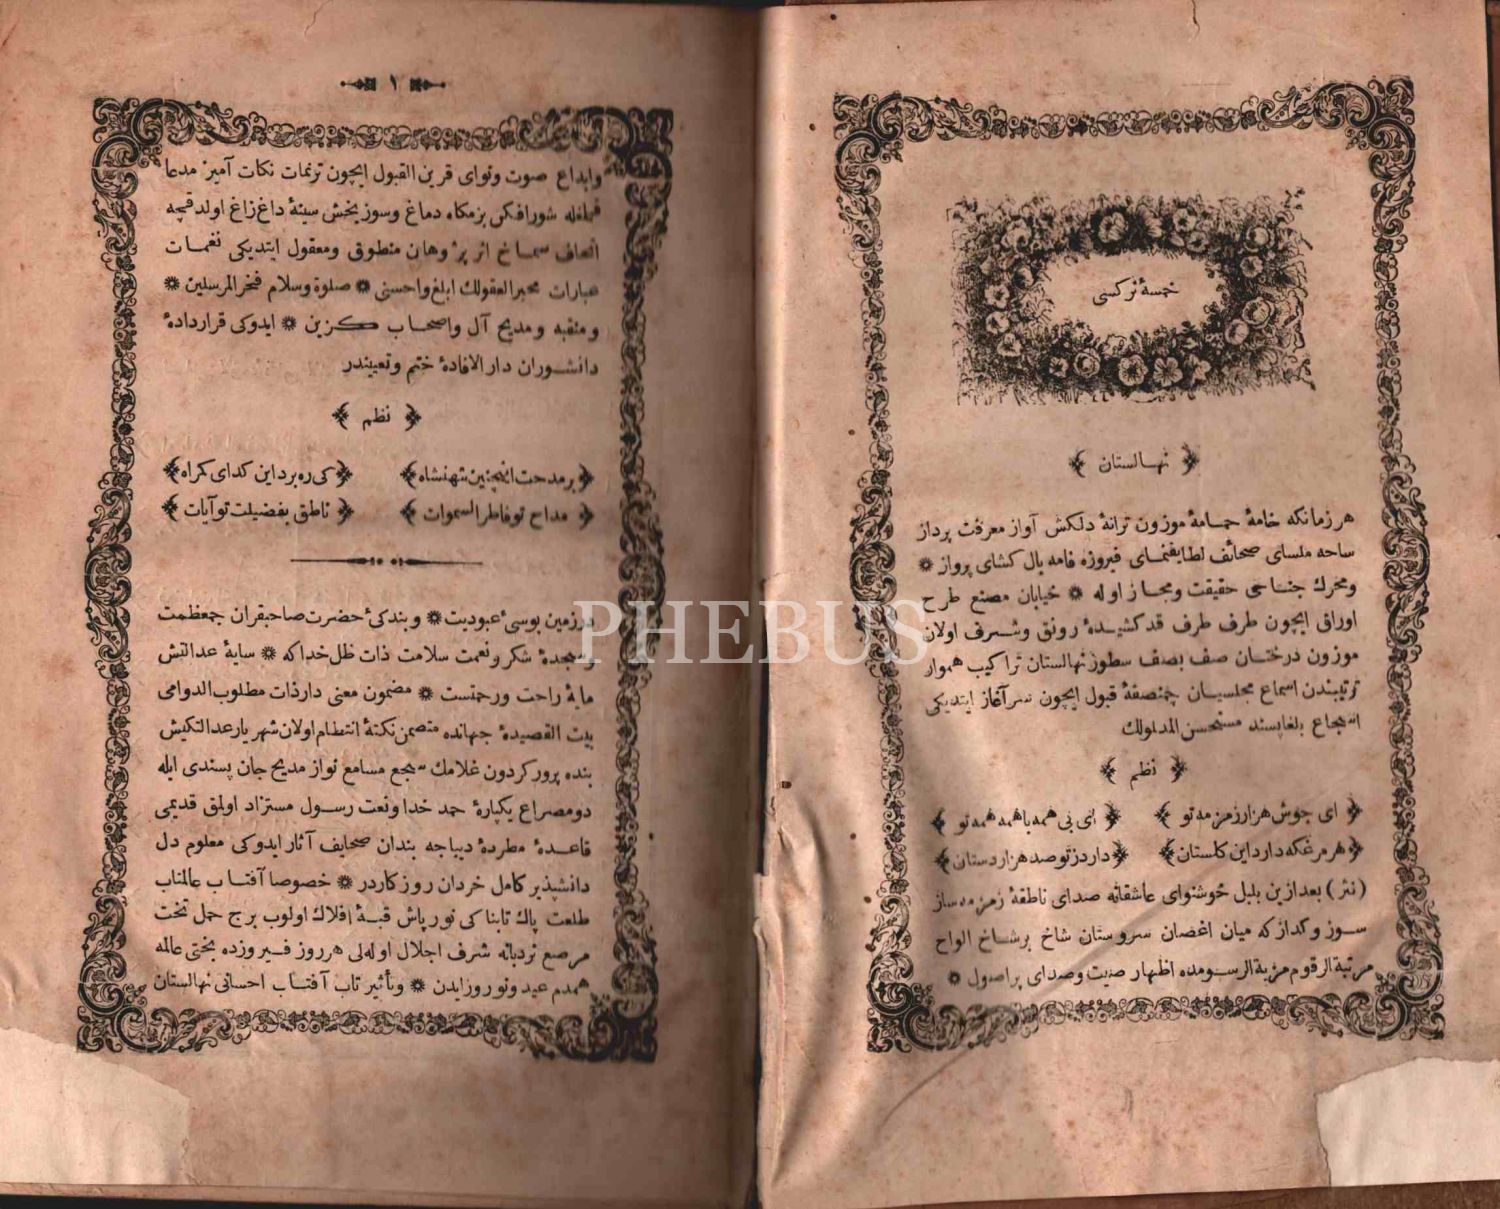 خمسۀ نركسی
نهالستان
هر زمانكه خامۀ حمامۀ موزون ترانۀ دلكش آواز معرفت پرداز
ساحه ملسای صحائف لطایفنمای فیروزه فامه بال كشای پرواز ❋
ومحرك جناحی حقیقت ومجاز اوله ❋ خیابان مصنع طرح
اوراق ایچون طرف طرف قد كشیدۀ رونق وشرف اولان
موزون درختان صف بصف سطور نهالستان تراكیب هموار
ترتیبندن اسماع مجلسیان چمنصفۀ قبول ایچون سر آغاز ایتدیكی
اسجاع بلغاپسند مستحسن المدلولك
نظم
ای جوش هزار زمزمه تو ای بی همه با همه همه تو
هر مرغ كه دارد این كلستان دارد ز تو صد هزار دستان
(نثر) بعد ازین بلبل خوشنوای عاشقانه صدای ناطقۀ زمزمه ساز
سوز وكداز كه میان اغصان سروستان شاخ برشاخ الواح
مرتبة الرقوم مزینة الرسومده اظهار صیت وصدای پر اصول ❋
١
وابداع صوت ونوای قرین القبول ایچون ترنمات نكات آمیز مدعا
غلغله شورافكن بزمكاه دماغ وسوز بخش سینۀ داغ زاغ اولدقچه
اتحاف سماخ اثر پژوهان منطوق ومعقول ایتدیكی نغمات
عبارات محیر العقولك ابلغ واحسنی ❋ صلوة وسلام فخر المرسلین ❋
ومنقبه ومدیح آل واصحاب كزین ❋ ایدوكی قراردادۀ
دانشوران دار الافادۀ ختم وتعییندر
نظم
بر مدحت اینچنین شهنشاه كی ره برد این كدای كمراه
مداح تو فاطر السموات ناطق بفضیلت تو آیات
درزمین بوسیٔ عبودیت ❋ وبندكیٔ حضرت صاحبقران جمعظمت
وسجدۀ شكر ونعمت سلامت ذات ظل خدا كه ❋ سایۀ عدالتش
مایۀ راحت ورحمتست ❋ مضمون معنی دار ذات مطلوب الدوامی
بیت القصیدۀ جهانده متضمن نكتۀ انتظام اولان شهریار عدالتكیش
بنده پرور كردون غلامك سجع مسامع نواز مدیح جان پسندی ایله
دو مصراع یكپارۀ حمد خدا ونعت رسول مستزاد اولمق قدیمی
قاعدۀ مطردۀ دیباجه بندان صحایف آثار ایدوكی معلوم دل
دانشپذیر كامل خردان روزكاردر ❋ خصوصا آفتاب عالمتاب
طلعت پاك تابناكی نورپاش قبۀ افلاك اولوب برج حمل تخت
مرصع نردبانه شرف اجلال اوله لی هر روز فیروزده بختی عالمه
همدم عید ونوروز ایدن ❋ وتأثیر تاب آفتاب احسانی نهالستان
PHEBUS